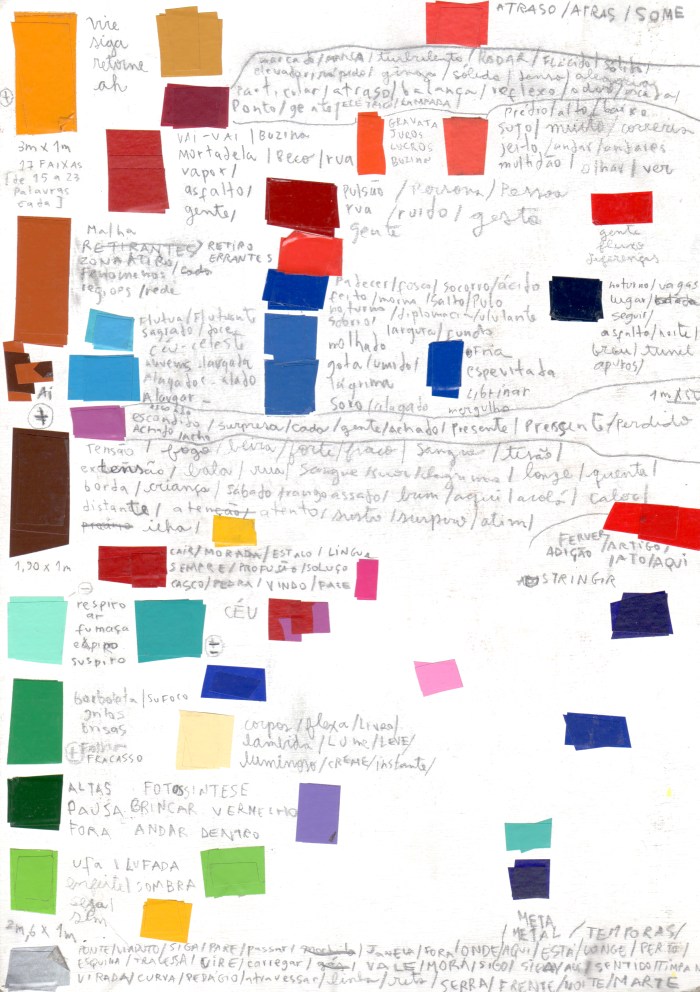 ATRASO/ATRAS/SOME
vire
siga
retorne
ah
marcado/mansa/turbulento/RODAR/FLÚCIDO/sólido/
elevador/rápido/ginga/sólido/tenso/alegria
particular/atraso/balança/reflexo/odor/mesa/
Ponto/gente/ELÉTRICO/LAMBADA/
3m x 1m
17 FAIXAS
[de 15 a 23
palavras
cada]
VAI-VAI/BUZINA
mortadela/Beco/rua
vapor/
asfalto/
gente/
GRAVATA
JUROS
LUCROS
BUZINA
prédio/alto/baixo
sujo/muito/correria
jeito/andar/andares
multidão/olhar/ver
Pulsão/Persona/Pessoa
rua/ruído/gesto
gente
gente
fluxo
diferenças
Malha
RETIRANTES/RETIRO
ZONA ATIRO/ERRANTES
fenômenos/cada
regiões/rede
Padecer/fosco/socorro/ácido
feito/morna/salto/Pulo
noturno/diplomacia/ululante
sobrio/largura/fundo
noturno/vagas
lugar/
seguir/
asfalto/noite/
breu/tunel
apuros/
Flutua/Flutuante
sagrado/fore
céu-celeste
nuvens/largada
Alagador-alado
Alargar-
molhado
gota/umido/
lágrima
Soro/alagado
fria
espevitada
Librinar
mergulho
Ai
1m x 50
escondido/surpresa/cada/gente/achado/Presente/Pressente/perdido
Achado/acho
Tensão/fogo/beira/forte/fraco/Sangue/tesão/
extensão/bala/rua/Sangue/suor/lagrima/longe/quente/
borda/criança/Sábado/frango assado/bum/aqui/acolá/calor/
distante/atenção/atento/susto/suspiro/atim/
ilha/
1,90 x 1m
CAIR/MORADA/ESTALO/LINGUA
SEMPRE/PROFUSÃO/SOLUÇO
CASCO/PEDRA/VINDO/FAZE
FERVER
ADIÇÃO/ARTIGO/
JATO/AQUI
ADSTRINGIR
respiro
ar
fumaça
expiro
suspiro
CÉU
borboleta/SUFOCO
grilos
brisas
Folha
FRACASSO
corpos/flexa/LIVRO/
lambida/LUME/LEVE/
luminoso/CREME/instante/
ALTAS FOTOSSINTESE
PAUSA BRINCAR VERMELHO
FORA ANDAR DENTRO
ufa/LUFADA
enfeite/SOMBRA
seja/
sim
2m,6 x 1m
META
METAL/TEMPORAS/
PONTE/VIADUTO/SIGA/PARE/passar/JANELA/FORA/ONDE/AQUI/ESTÁ/LONGE/PERTO/
ESQUINA/TRAVESSA/VIRE/carregar/VALE/MORA/SIGO/SIGA/SENTIDO/TIMPANO
VIRADA/CURVA/PEDÁGIO/atravessar/linha/reta/SERRA/FRENTE/NOITE/MARTE